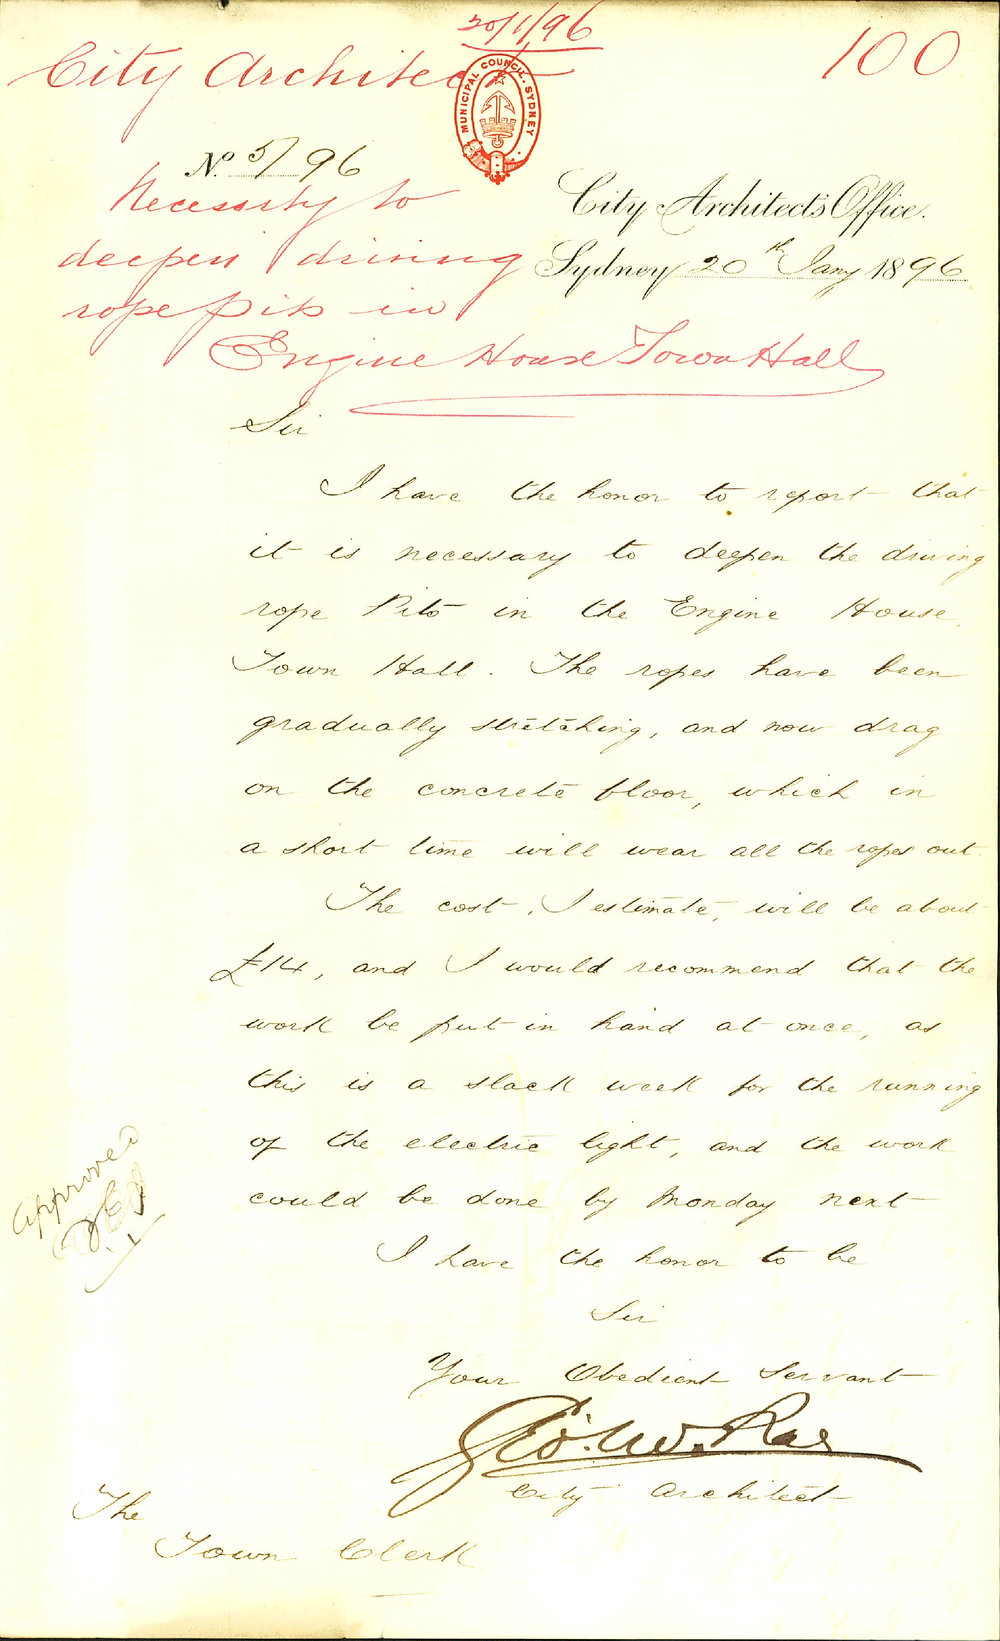 20/1/96
City Architect
100
MUNICIPAL COUNCIL. SYDNEY
No. 5/96
Necessity to
deepen driving
rope pits in
Engine House Town Hall
City Architect's Office.
Sydney 20th Jany 1896
Sir
I have the honor to report that
it is necessary to deepen the driving
rope Pits in the Engine House,
Town Hall. The ropes have been
gradually stretching, and now drag
on the concrete floor, which in
a short time will wear all the ropes out.
The cost, I estimate, will be about
£14, and I would recommend that the
work be put in hand at once, as
this is a slack week for the running
of the electric light, and the work
could be done by Monday next
Approved
I have the honor to be
Sir
Your Obedient Servant
Geo. W. Rae
City Architect
The
Town Clerk